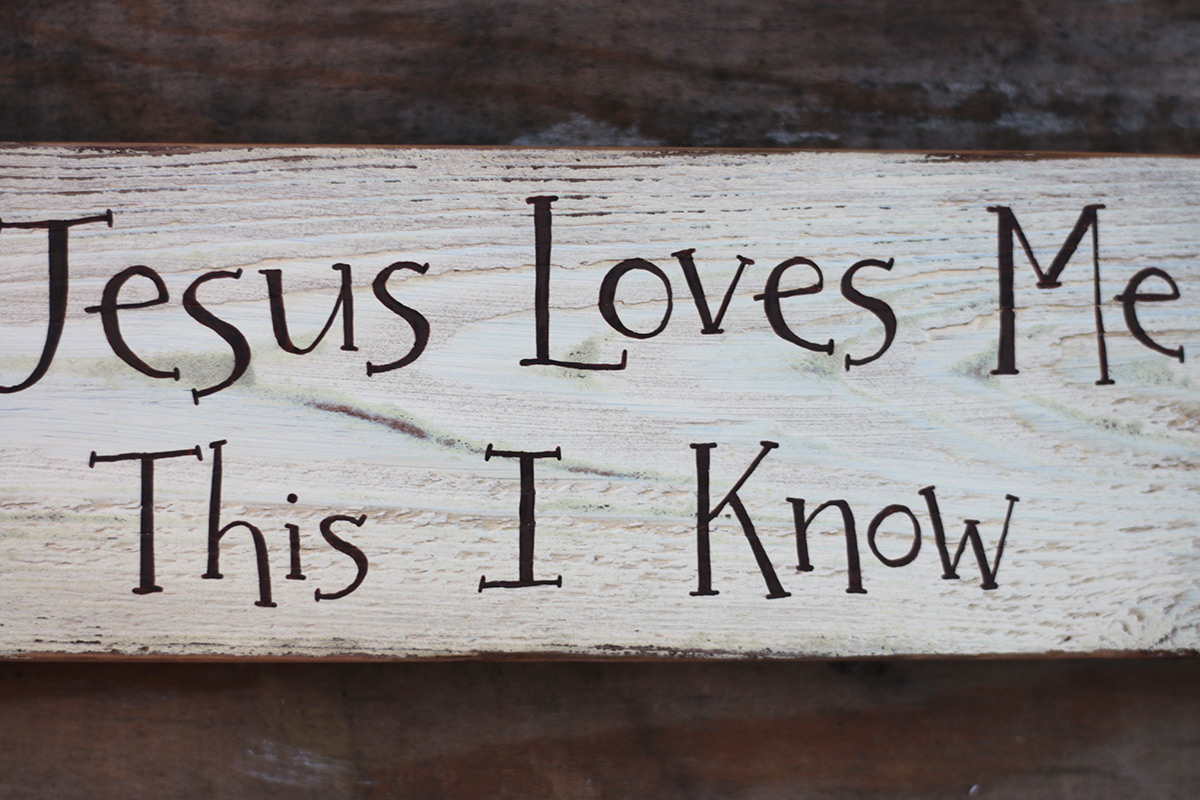 Jesus Loves Me
This I Know